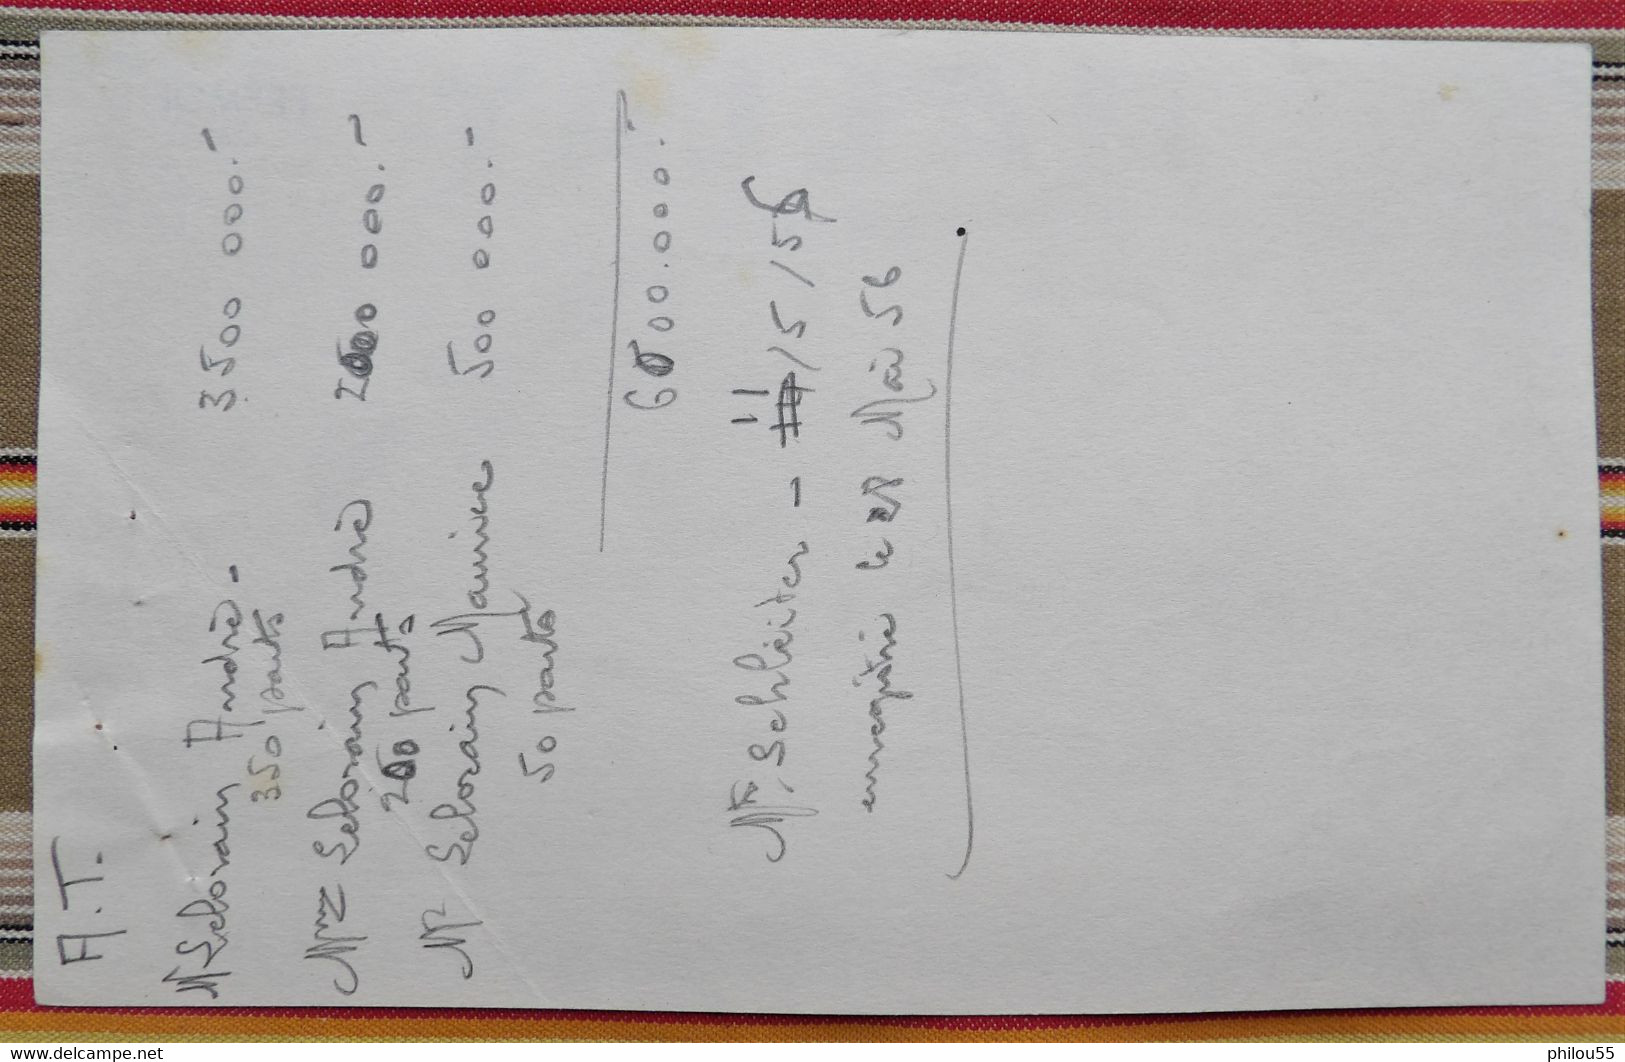 A.T.
Mr Selorain André - 3500 000.-
350 parts
Mme Selorain André 2000 000.-
200 parts
Mr Selorain Maurice 500 000.-
50 parts
6000.000.-
Mtre Schleiter - 11/5/56
enregistré le Mai 56
www.delcampe.net
philou55